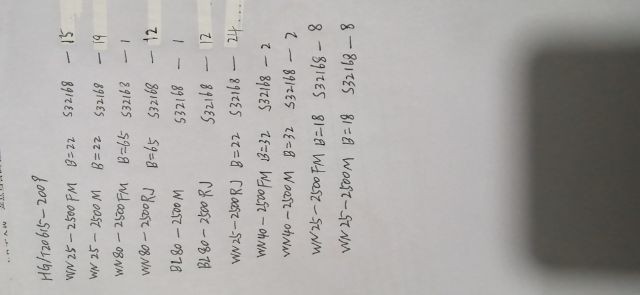 HG/T20615-2009
WN25-2500FM B=22 S32168 - 15
WN25-2500M B=22 S32168 - 19
WN80-2500FM B=65 S32168 - 1
WN80-2500RJ B=65 S32168 - 12
BL80-2500M S32168 - 1
BL80-2500RJ S32168 - 12
WN25-2500RJ B=22 S32168 - 24
WN40-2500FM B=32 S32168 - 2
WN40-2500M B=32 S32168 - 2
WN25-2500FM B=18 S32168 - 8
WN25-2500M B=18 S32168 - 8